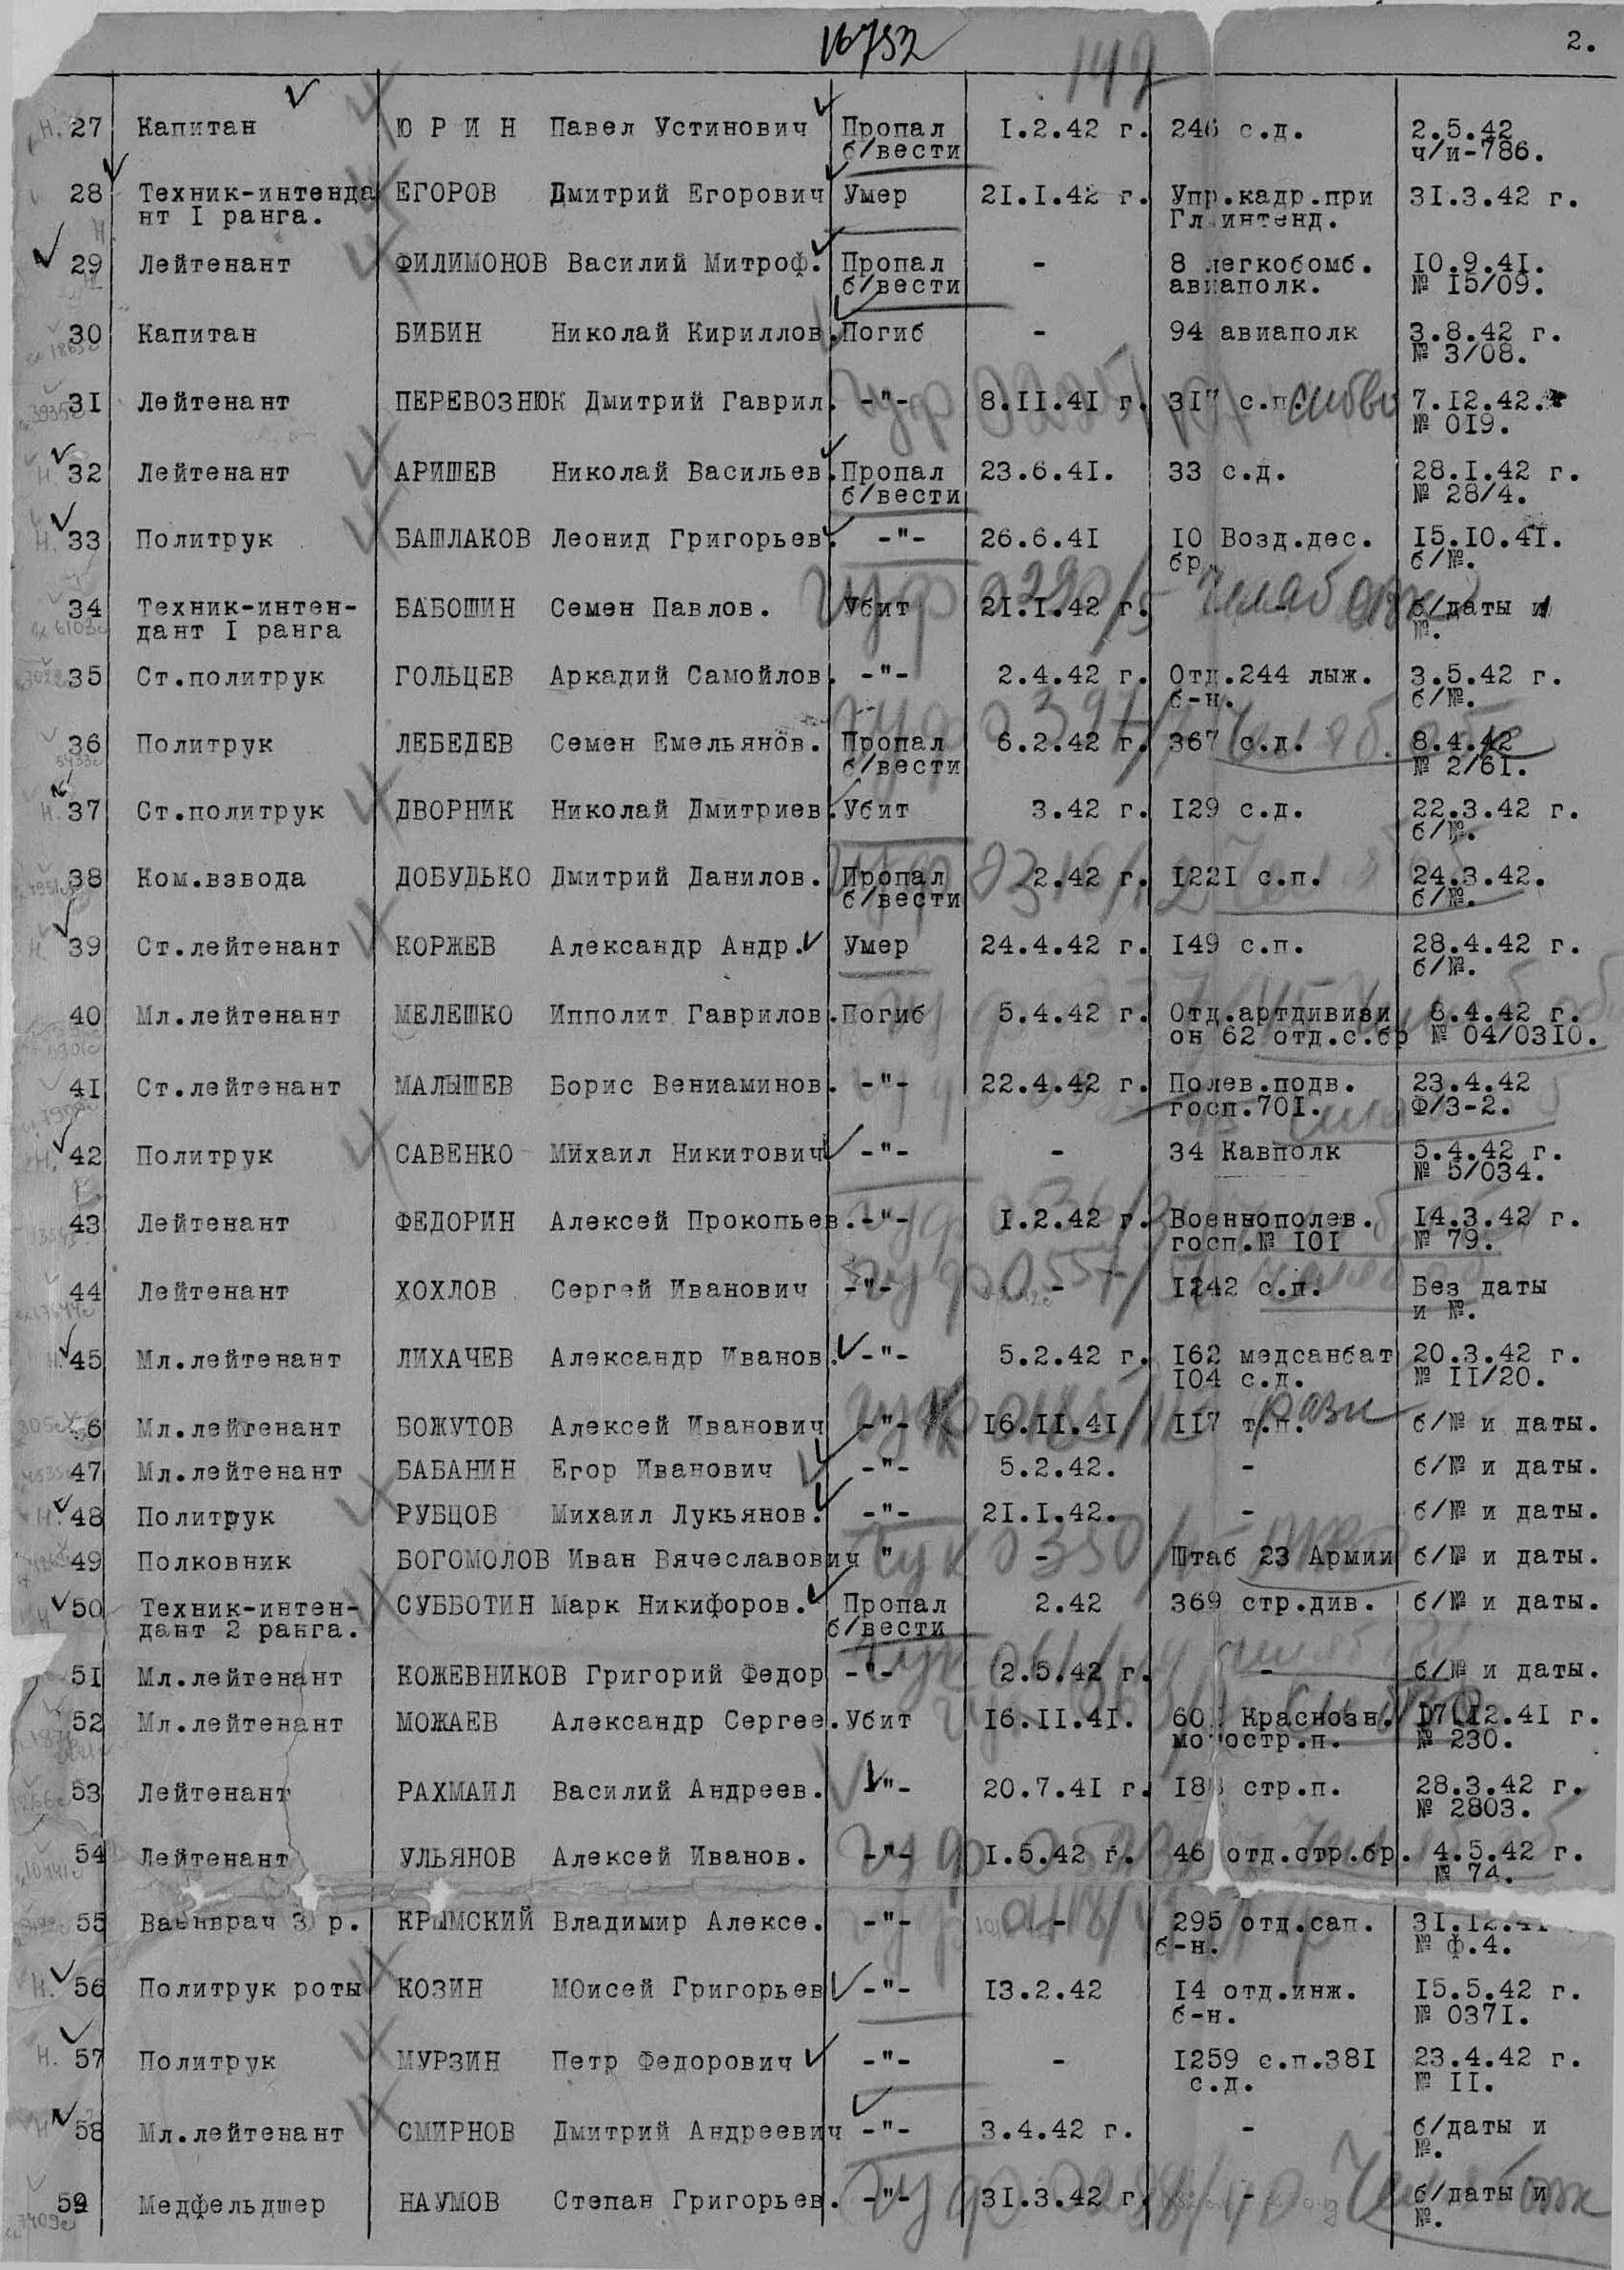 16752
2.
149
27 Капитан Ю Р И Н Павел Устинович Пропал 1.2.42 г. 246 с.д. 2.5.42
б/вести ч/и-786.
28 Техник-интенда ЕГОРОВ Дмитрий Егорович Умер 21.1.42 г. Упр.кадр.при 31.3.42 г.
нт I ранга. Гл.интенд.
29 Лейтенант ФИЛИМОНОВ Василий Митроф. Пропал - 8 легкобомб. 10.9.41.
б/вести авиаполк. № 15/09.
30 Капитан БИБИН Николай Кириллов. Погиб - 94 авиаполк 3.8.42 г.
№ 3/08.
31 Лейтенант ПЕРЕВОЗНЮК Дмитрий Гаврил. -"- 8.11.41 г. 317 с.п. 7.12.42.
№ 019.
32 Лейтенант АРИШЕВ Николай Васильев. Пропал 23.6.41. 33 с.д. 28.1.42 г.
б/вести № 28/4.
33 Политрук БАШЛАКОВ Леонид Григорьев. -"- 26.6.41 10 Возд.дес. 15.10.41.
бр. б/№.
34 Техник-интен- БАБОШИН Семен Павлов. Убит 21.1.42 г. - б/даты и
дант I ранга №.
35 Ст.политрук ГОЛЬЦЕВ Аркадий Самойлов. -"- 2.4.42 г. Отд.244 лыж. 3.5.42 г.
б-н. б/№.
36 Политрук ЛЕБЕДЕВ Семен Емельянов. Пропал 6.2.42 г. 367 с.д. 8.4.42
б/вести № 2/61.
37 Ст.политрук ДВОРНИК Николай Дмитриев. Убит 3.42 г. 129 с.д. 22.3.42 г.
б/№.
38 Ком.взвода ДОБУДЬКО Дмитрий Данилов. Пропал 2.42 г. 1221 с.п. 24.3.42.
б/вести б/№.
39 Ст.лейтенант КОРЖЕВ Александр Андр. Умер 24.4.42 г. 149 с.п. 28.4.42 г.
б/№.
40 Мл.лейтенант МЕЛЕШКО Ипполит Гаврилов. Погиб 5.4.42 г. Отд.артдивизи 6.4.42 г.
он 62 отд.с.бр № 04/0310.
41 Ст.лейтенант МАЛЫШЕВ Борис Вениаминов. -"- 22.4.42 г. Полев.подв. 23.4.42
госп.701. Ф/3-2.
42 Политрук САВЕНКО МИхаил Никитович -"- - 34 Кавполк 5.4.42 г.
№ 5/034.
43 Лейтенант ФЕДОРИН Алексей Прокопьев. -"- 1.2.42 г. Военнополев. 14.3.42 г.
госп.№ 101 № 79.
44 Лейтенант ХОХЛОВ Сергей Иванович -"- - 1242 с.п. Без даты
и №.
45 Мл.лейтенант ЛИХАЧЕВ Александр Иванов. -"- 5.2.42 г. 162 медсанбат 20.3.42 г.
104 с.д. № 11/20.
6 Мл.лейтенант БОЖУТОВ Алексей Иванович -"- 16.11.41 117 т.п. б/№ и даты.
47 Мл.лейтенант БАБАНИН Егор Иванович -"- 5.2.42. - б/№ и даты.
48 Политрук РУБЦОВ Михаил Лукьянов. -"- 21.1.42. - б/№ и даты.
49 Полковник БОГОМОЛОВ Иван Вячеславович " - Штаб 23 Армии б/№ и даты.
50 Техник-интен- СУББОТИН Марк Никифоров. Пропал 2.42 369 стр.див. б/№ и даты.
дант 2 ранга. б/вести
51 Мл.лейтенант КОЖЕВНИКОВ Григорий Федор -"- 2.5.42 г. - б/№ и даты.
52 Мл.лейтенант МОЖАЕВ Александр Сергее. Убит 16.11.41. 60 Краснозн. 17.12.41 г.
мотостр.п. № 230.
53 Лейтенант РАХМАИЛ Василий Андреев. -"- 20.7.41 г. 18 стр.п. 28.3.42 г.
№ 2803.
54 Лейтенант УЛЬЯНОВ Алексей Иванов. -"- 1.5.42 г. 46 отд.стр.бр. 4.5.42 г.
№ 74.
55 Ваенврач 3 р. КРЫМСКИЙ Владимир Алексе. -"- - 295 отд.сап. 31.12.41
б-н. № ф.4.
56 Политрук роты КОЗИН МОисей Григорьев -"- 13.2.42 14 отд.инж. 15.5.42 г.
б-н. № 0371.
57 Политрук МУРЗИН Петр Федорович -"- - 1259 с.п.381 23.4.42 г.
с.д. № 11.
58 Мл.лейтенант СМИРНОВ Дмитрий Андреевич -"- 3.4.42 г. - б/даты и
№.
59 Медфельдшер НАУМОВ Степан Григорьев. -"- 31.3.42 г. - б/даты и
№.